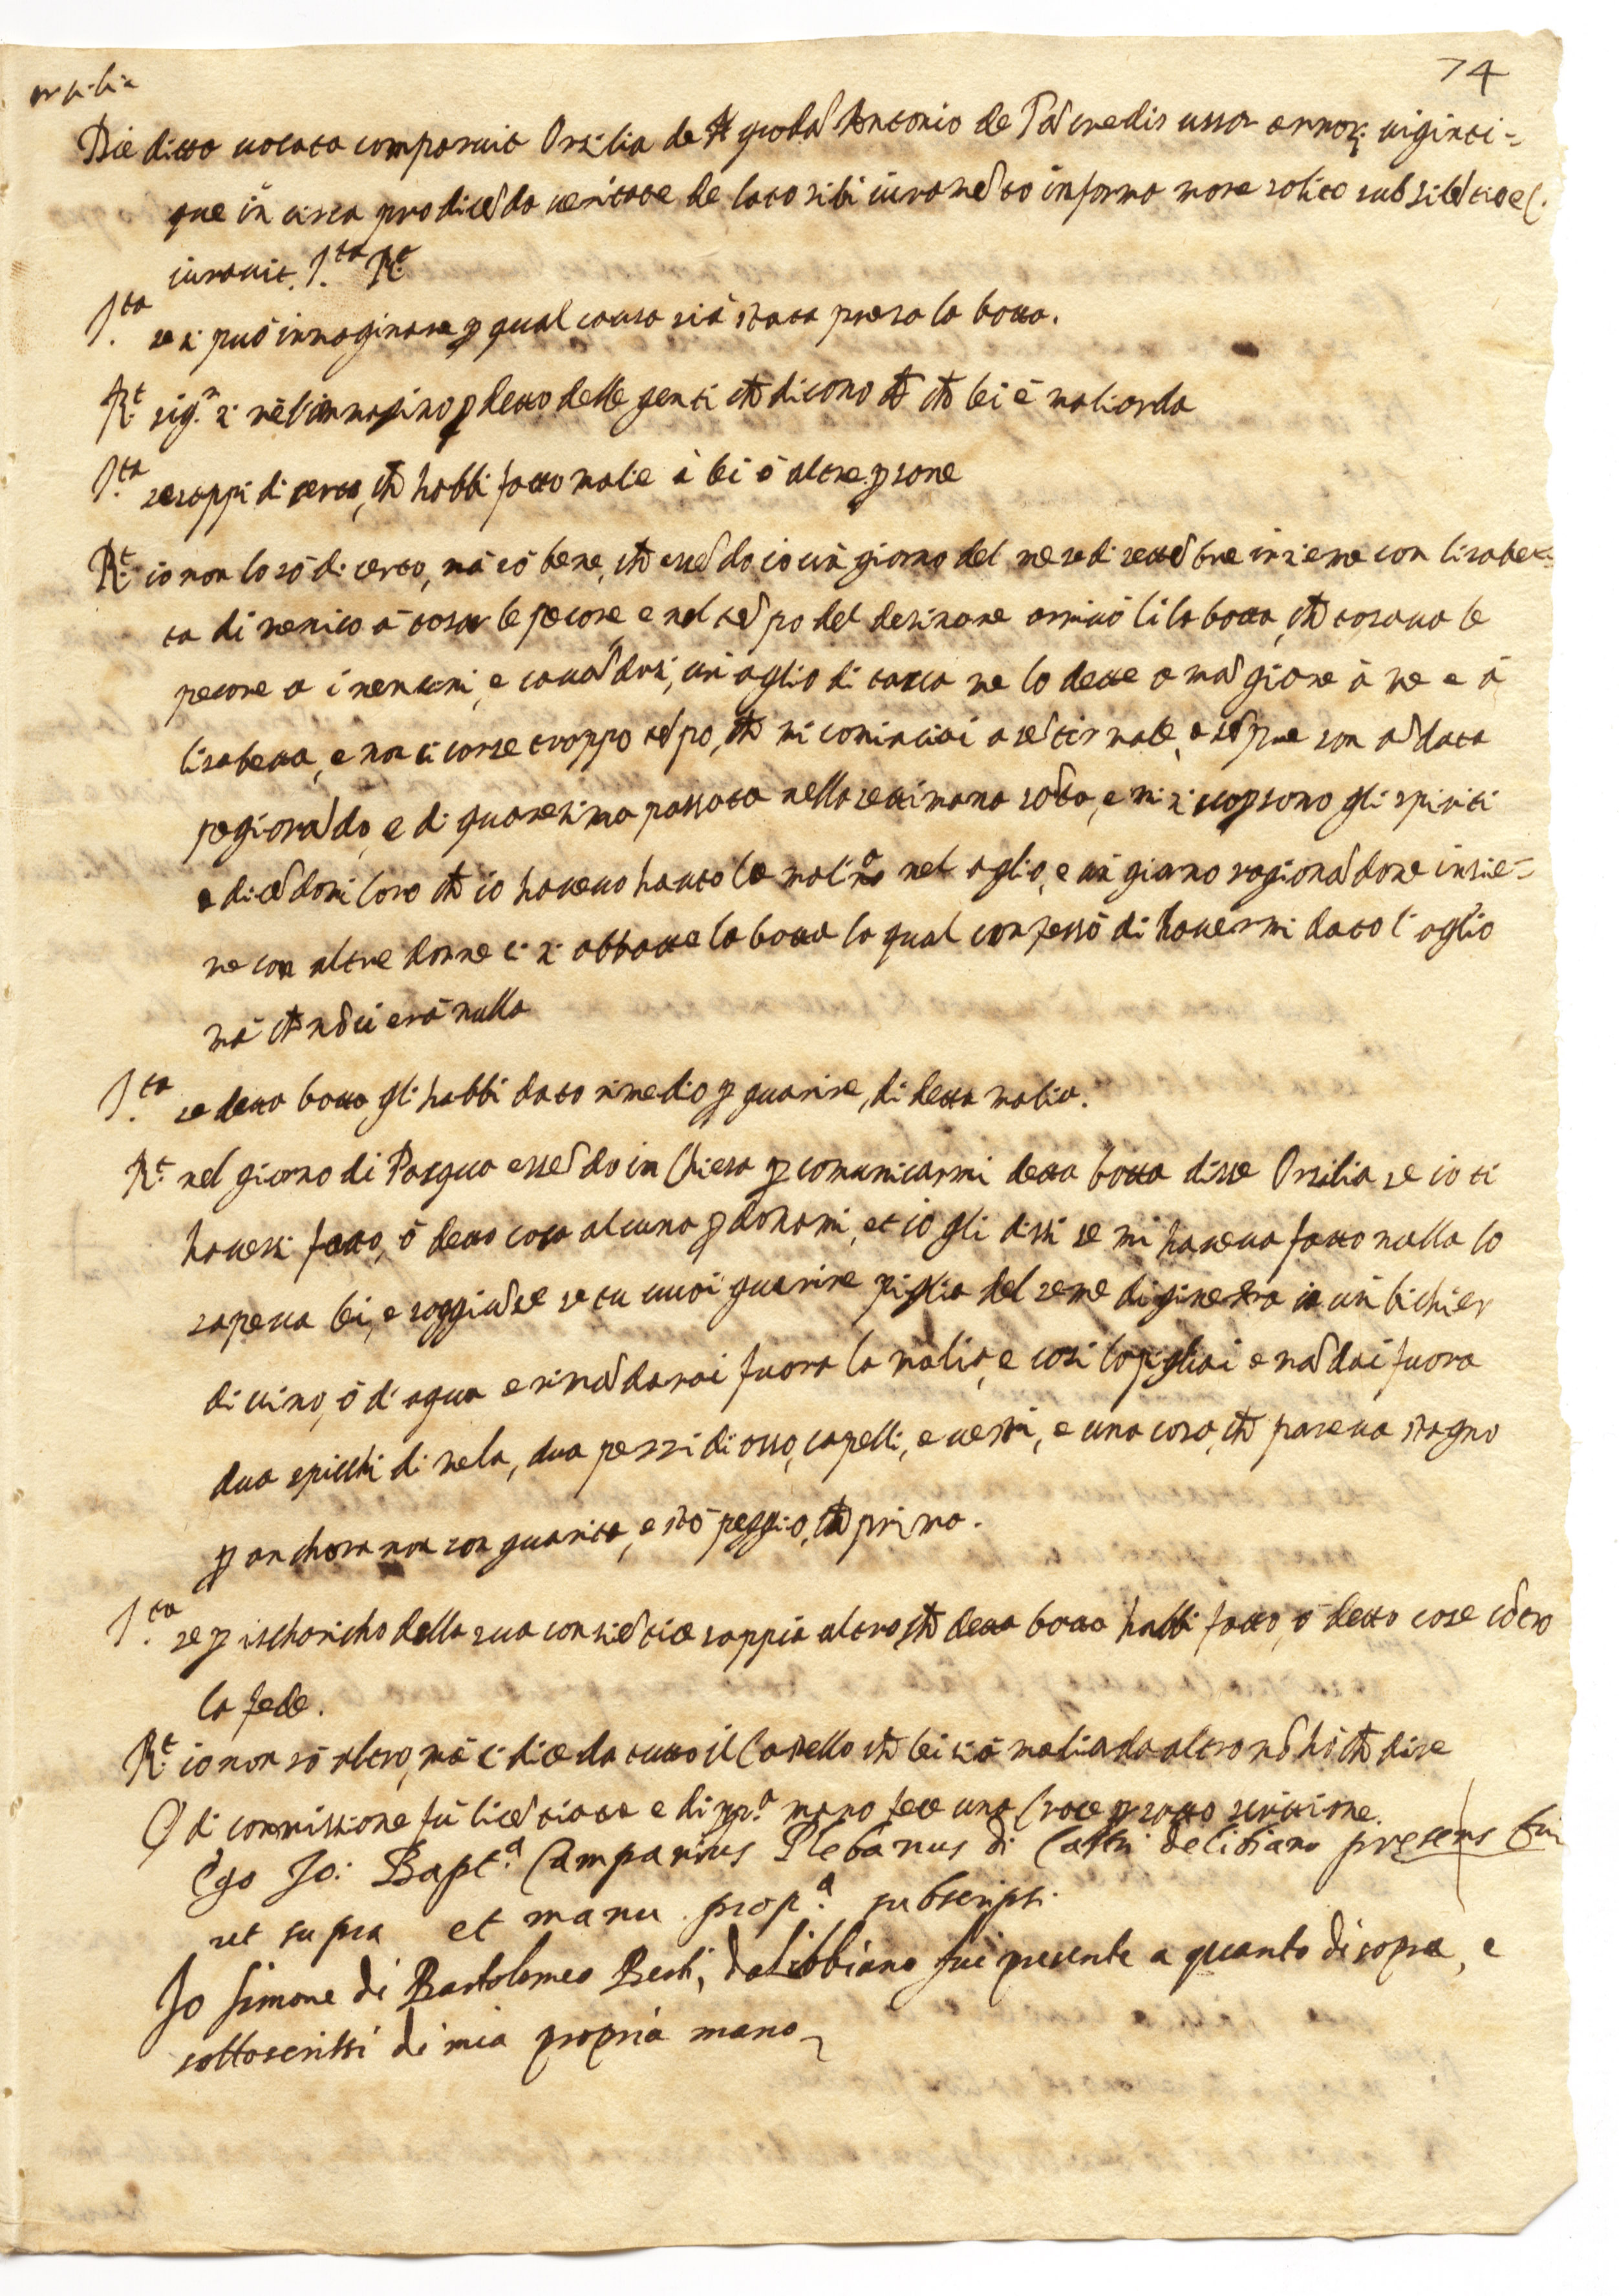 74
orsilia
Die ditta uocata comparuit Orsilia de quoda Antonio de Pācredis uxor annor. uiginti=
que in circa pro dicēda ueritate de lato sibi iuramēto in forma more solito sub silētio etc.
iurauit. I.ta R.t
I.ta se si può immaginare p qual causa sià stata presa la botta.
R.t sig.r si me l'immagino p detto delle genti che dicono che che lei è maliarda
I.ta se sappi di certo, che habbi fatto malie à lei ò altre psone
R.t io non lo sò di certo, mà sò bene, che essēdo io un giorno del mese di settēbre insieme con lisabet=
ta di menico à tosar le pecore e nel tēpo del desinare arriuò li la botta, che tosaua le
pecore a i nencini, e cauādosi, un aglio di tasca me lo dette a māgiare à me e à
lisabetta, e non ci corse troppo tēpo, che mi cominciai a sētir male, e sēpre son ādata
pegiorādo, e di quaresima passata nella settimana sāta, e mi si scopsono gli spiriti
e dicēdomi loro che io haueuo hauto la malia nel aglio, e un giorno ragionādone insie=
me con altre donne ci si abbatte la botta la qual confessò di hauermi dato l'aglio
mà che nō ci erà nulla
I.ta se detta botta gli habbi dato rimedio p guarire, di detta malia.
R.t nel giorno di Pasqua essēdo in Chiesa p comunicarmi detta botta disse Orsilia se io ti
hauessi fatto, ò detto cosa alcuna pdonami, et io gli dissi se mi haueua fatto nulla lo
sapeua lei, e soggiūse se tu uuoi guarire piglia del seme di ginestra in un bichier
di uino, ò di aqua e rimādarai fuora la malia, e cosi la pigliai e mādai fuora
dua spicchi di mela, dua pezzi di osso, capelli, e uestri, e una cosa, che pareua stagno
p anchora non son guarita, e stò peggio, che prima.
I.ta se p ischaricho della sua consciētia sappia altro, che detta botta habbi fatto, ò detto cose cōtro
la fede.
R.t io non sò altro, mà si dice da tutto il Castello che lei sià maliarda altro nō hò che dire
di commissione fù licētiata e di pp.a mano fece una Croce p sotto scrittione.
Ego Jo: Bapt.a Campanius Plebanus di Castri de libiano presens fui
ut supra et manu prop.a subscripsi.
Jo Simone di Bartolomeo Berti, da Libbiano fui presente a quanto di sopra, e
sottoscrissi di mia propria mano